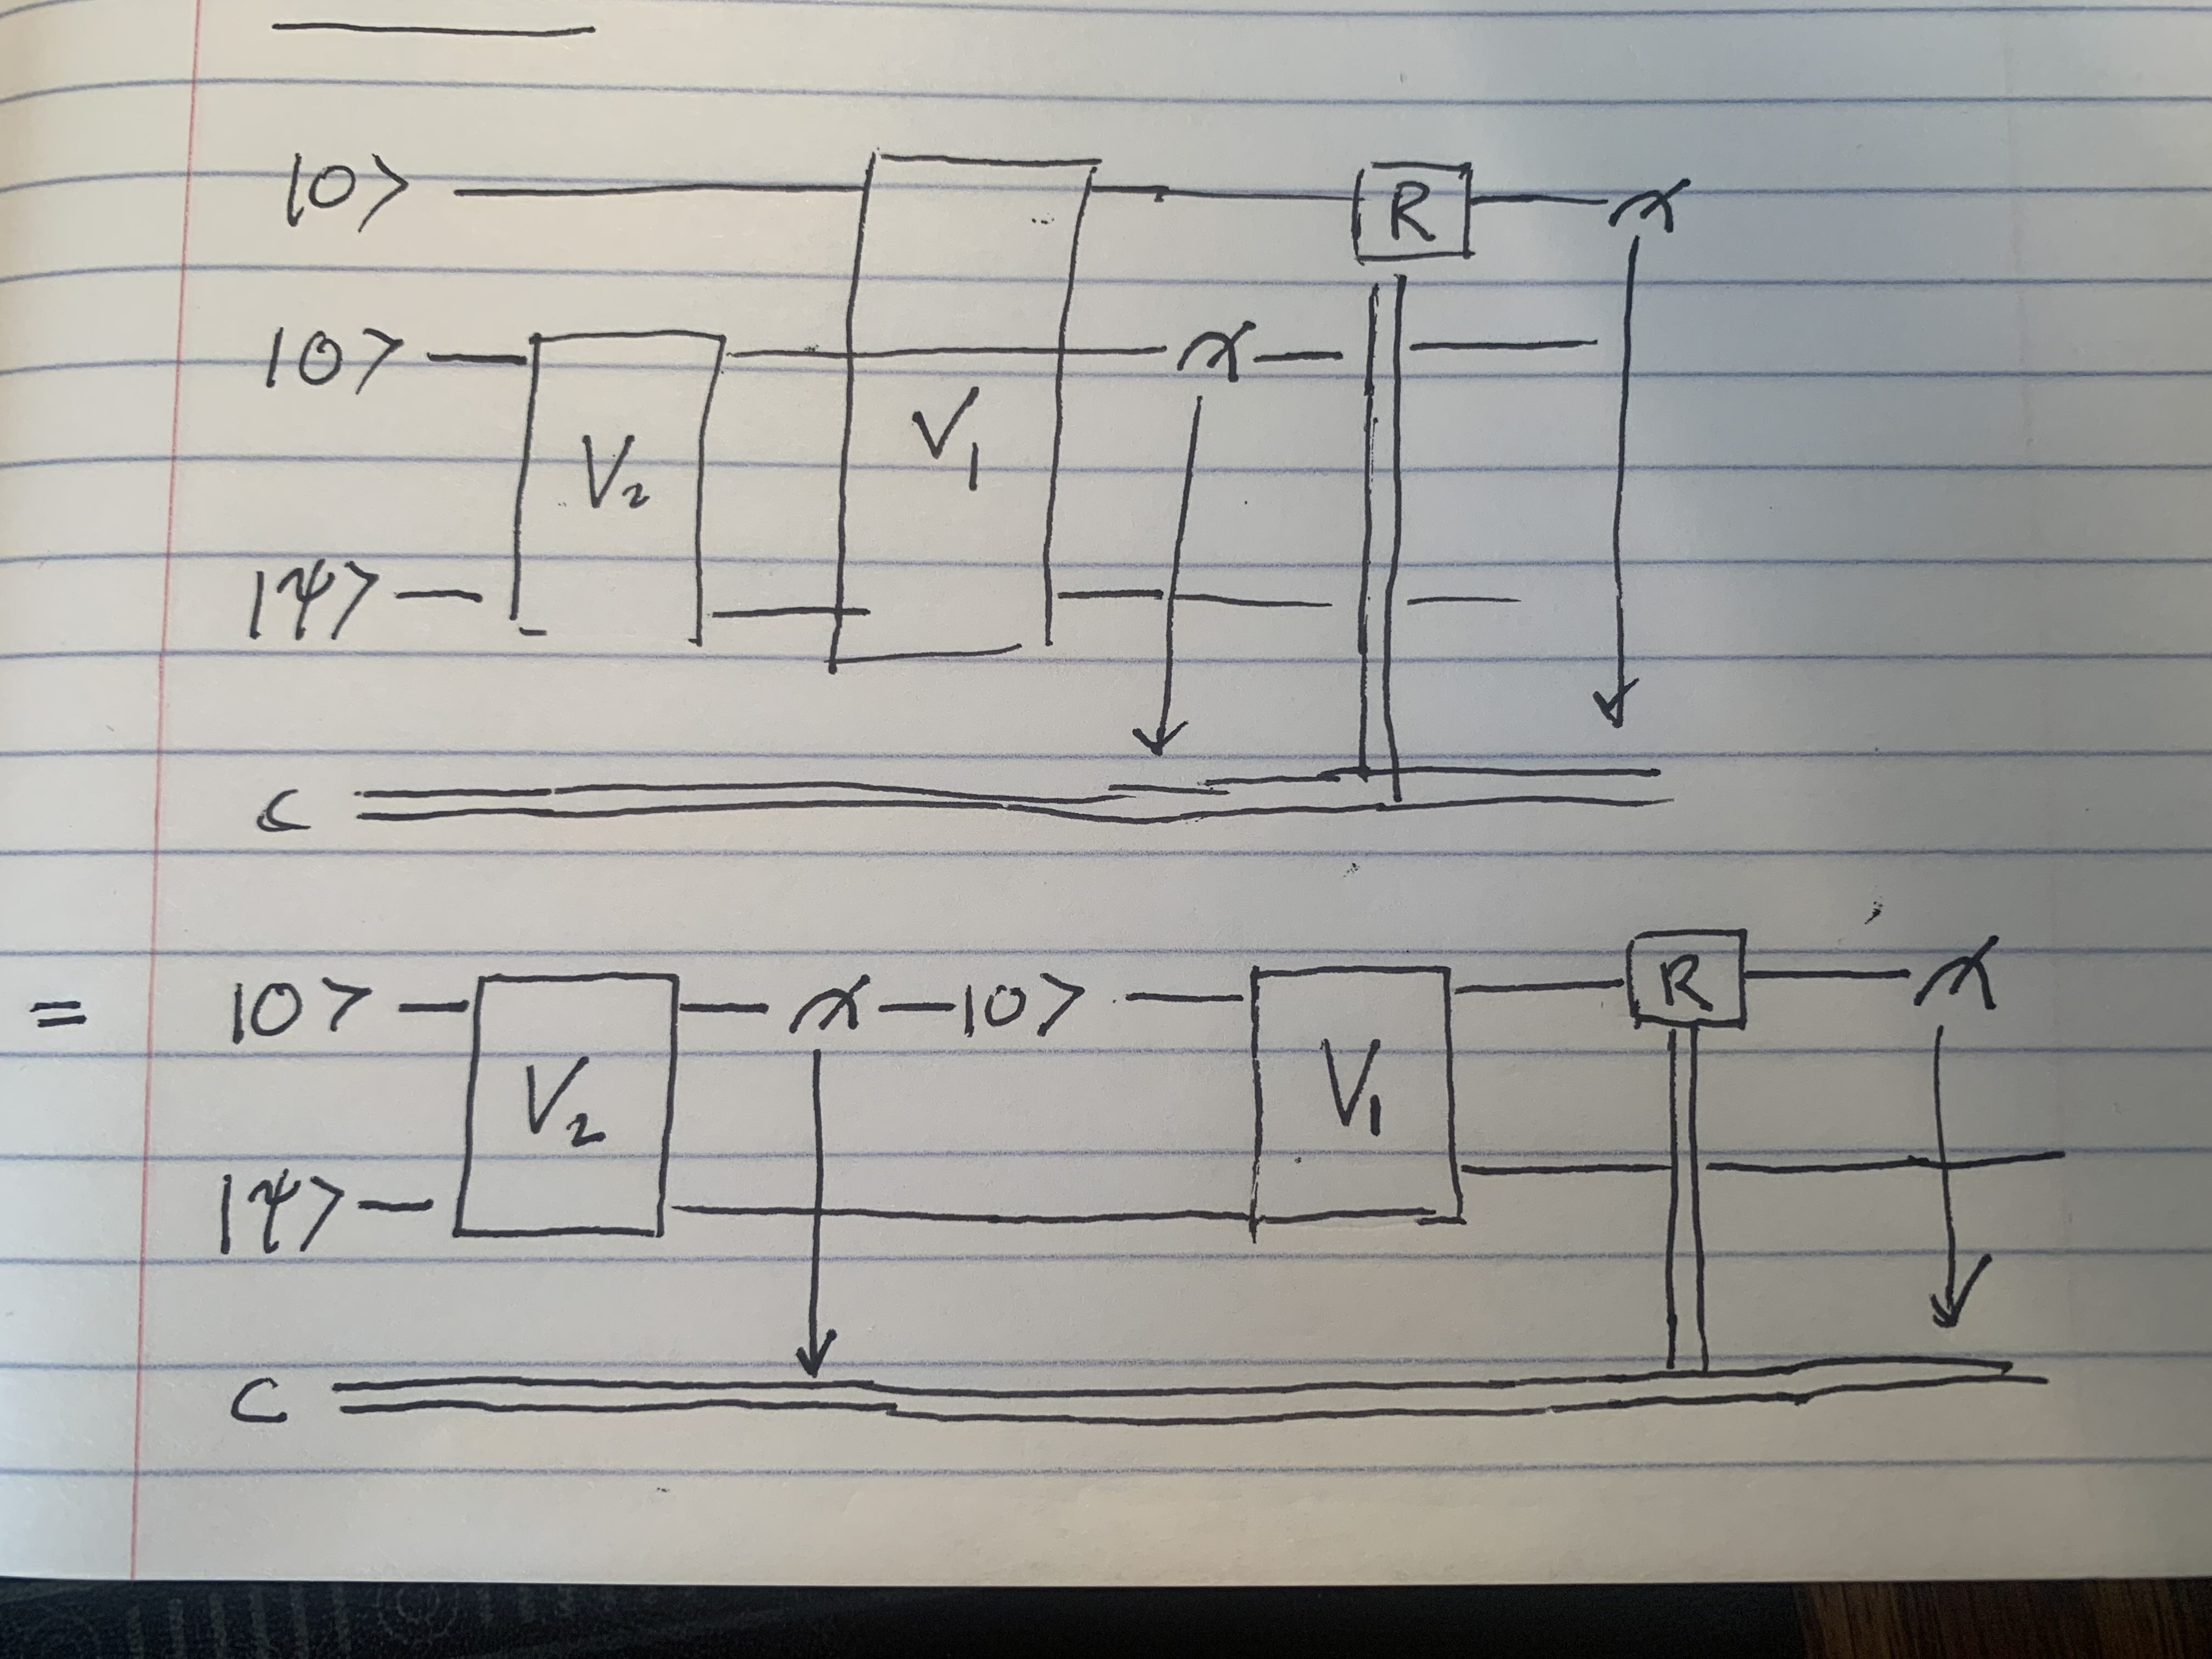 |0⟩ R
|0⟩ V₂ V₁
|ψ⟩
C
= |0⟩ V₂ |0⟩ V₁ R
|ψ⟩
C